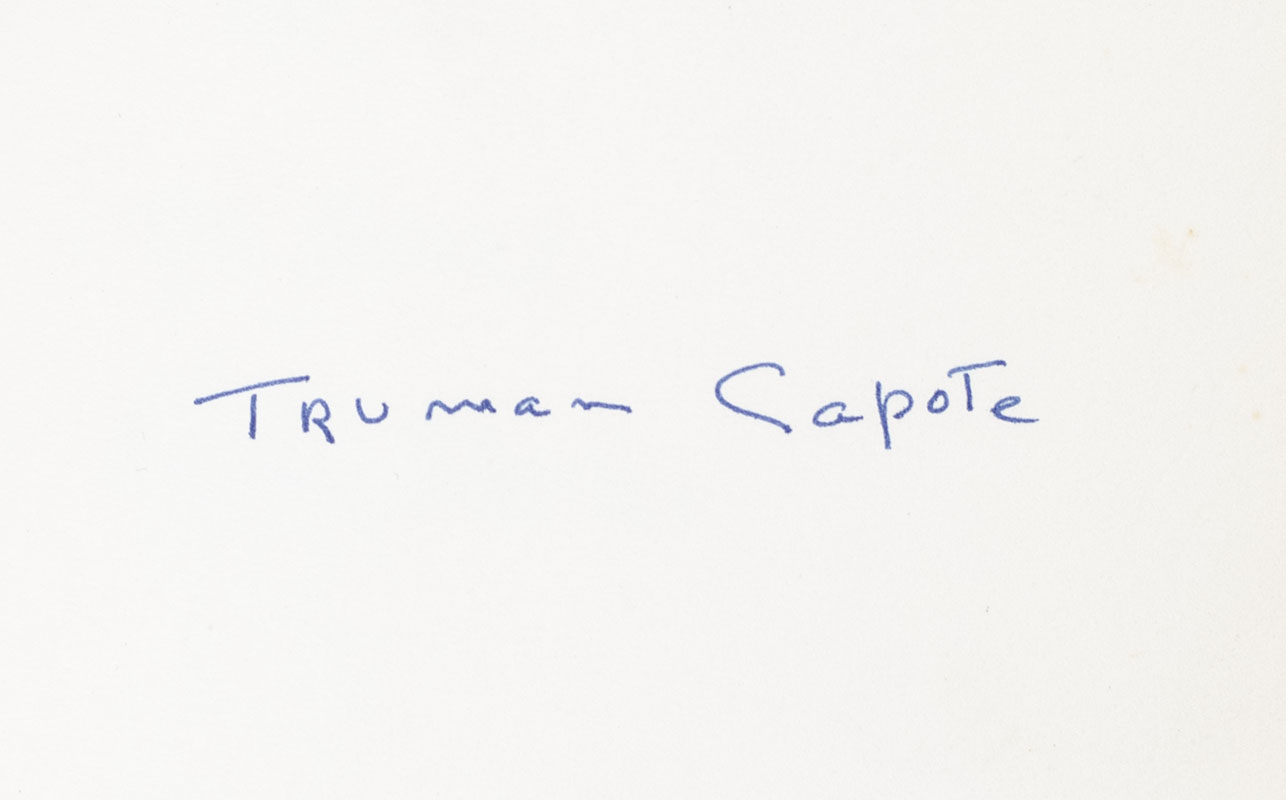 Truman Capote